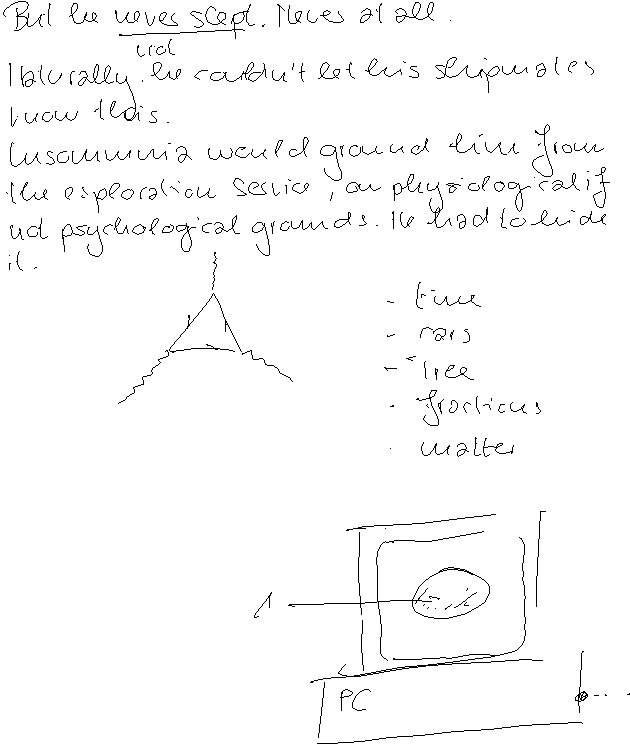 But he never slept. Never at all.
Naturally, he couldn't let his shipmates
know this.
Insomnia would ground him from
the exploration service, on physiological if
not psychological grounds. He had to hide
it.
- time
- rays
- tree
- fractions
- matter
1
PC